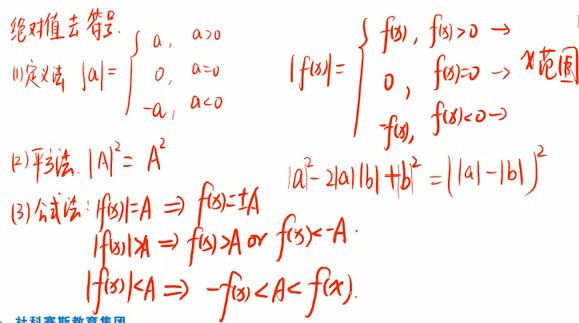 绝对值去符号.
(1)定义法 |a|= { a, a>0
0, a=0
-a, a<0
|f(x)|= { f(x), f(x)>0 →
0, f(x)=0 → x范围
-f(x), f(x)<0→
(2)平方法. |A|²=A²
|a|²-2|a||b|+|b|²=(|a|-|b|)²
(3)公式法: |f(x)|=A ⇒ f(x)=±A
|f(x)|>A ⇒ f(x)>A or f(x)<-A.
|f(x)|<A ⇒ -f(x)<A<f(x).
社科赛斯教育集团